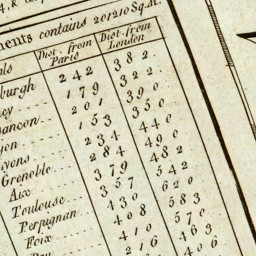 ments contains 201210 Sq. M.
Dist. from Paris Dist. from London
sburgh 242 382
179 322
ancon 201 390
jon 153 350
yons 234 440
Grenoble 284 490
Aix 379 482
Toulouse 357 542
Perpignan 430 620
Foix 408 583
410 570
216 463
406